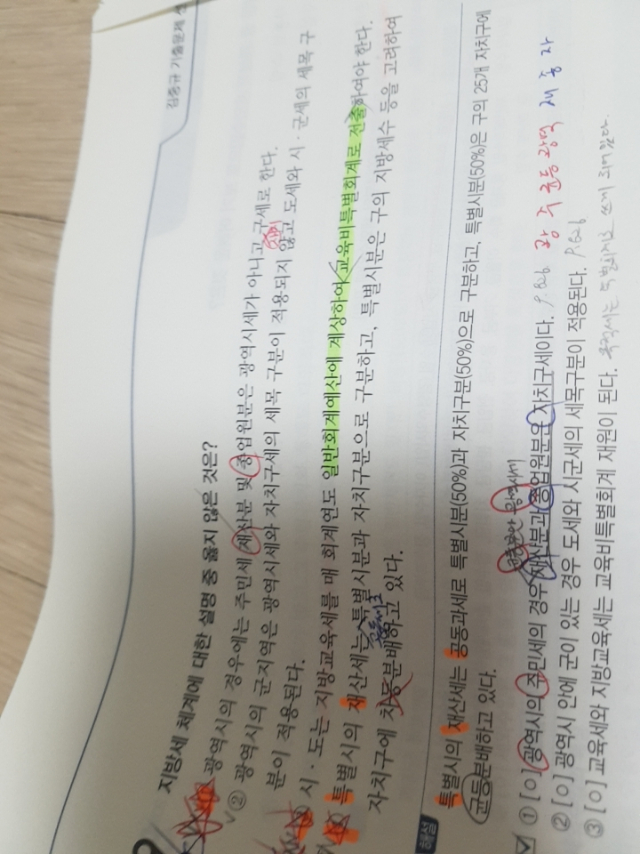 김중규 기출문제
지방세 체계에 대한 설명 중 옳지 않은 것은?
광역시의 경우에는 주민세 재산분 및 종업원분은 광역시세가 아니고 구세로 한다.
② 광역시의 군지역은 광역시세와 자치구세의 세목 구분이 적용되지 않고 도세와 시·군세의 세목 구
분이 적용된다.
시·도는 지방교육세를 매 회계연도 일반회계예산에 계상하여 교육비특별회계로 전출하여야 한다.
특별시의 재산세는 특별시분과 자치구분으로 구분하고, 특별시분은 구의 지방세수 등을 고려하여
자치구에 차등분배하고 있다.
공동과세로
해설
특별시의 재산세는 공동과세로 특별시분(50%)과 자치구분(50%)으로 구분하고, 특별시분(50%)은 구의 25개 자치구에
균등분배하고 있다.
균등분만 광역시세
① [O] 광역시의 주민세의 경우 재산분과 종업원분은 자치구세이다. P.626 광 주 균등 광역 재 종 자
② [O] 광역시 안에 군이 있는 경우 도세와 시군세의 세목구분이 적용된다. P.626
③ [O] 교육세와 지방교육세는 교육비특별회계 재원이 된다.